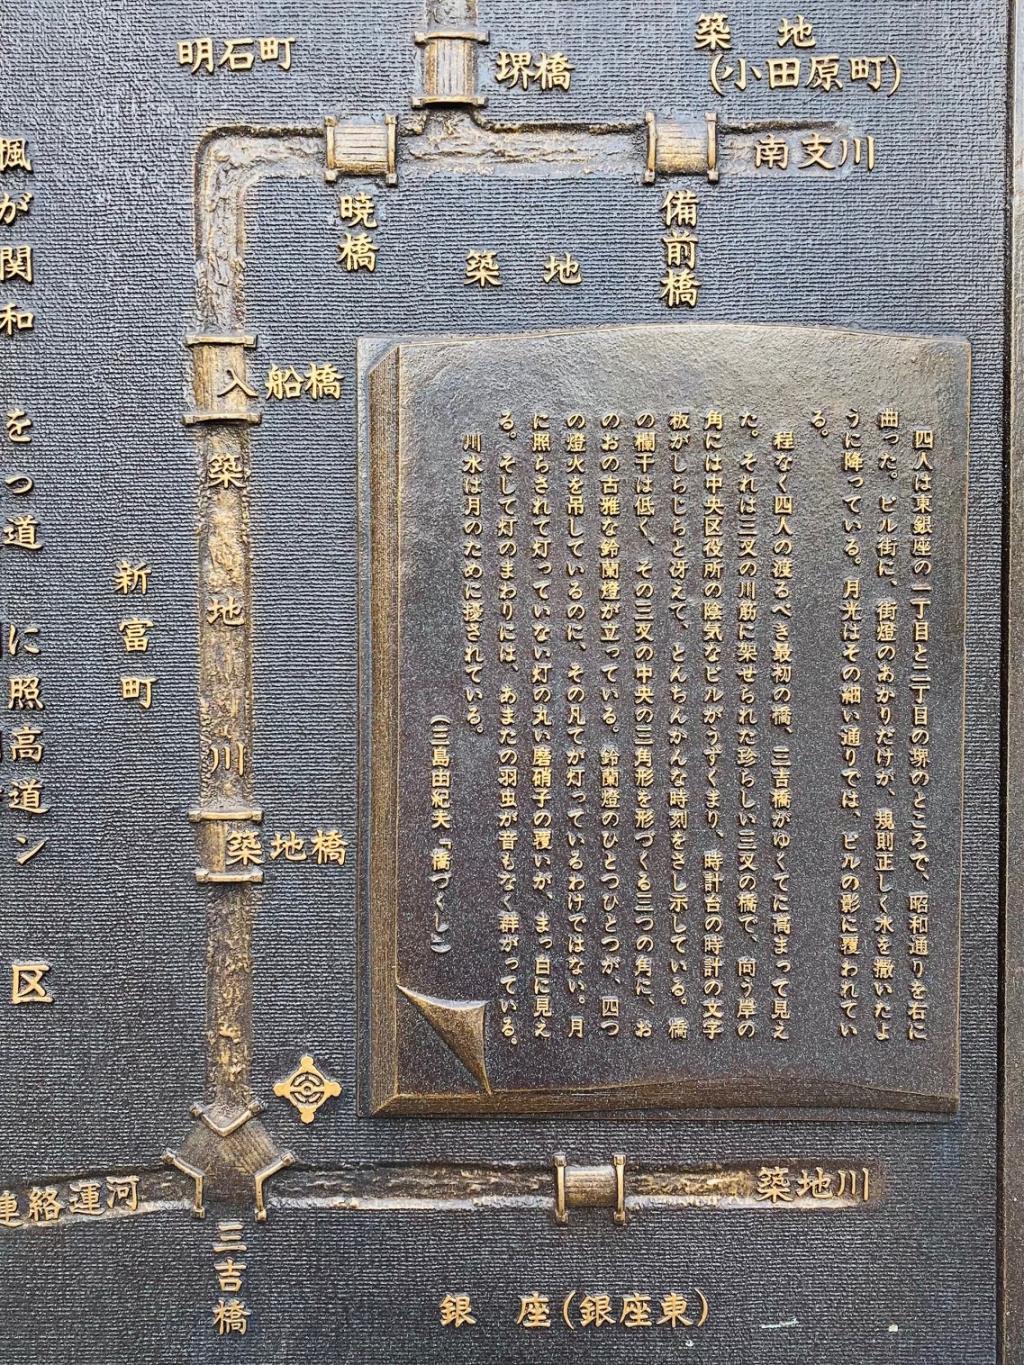 明石町
堺橋
築地
(小田原町)
南支川
暁橋
備前橋
築地
入船橋
築地川
新富町
築地橋
四人は東銀座の一丁目と二丁目の堺のところで、昭和通りを右に
曲った。ビル街に、街燈のあかりだけが、規則正しく水を撒いたよ
うに降っている。月光はその細い通りでは、ビルの影に覆われてい
る。
程なく四人の渡るべき最初の橋、三吉橋がゆくてに高まって見え
た。それは三叉の川筋に架せられた珍らしい三叉の橋で、向う岸の
角には中央区役所の陰気なビルがうずくまり、時計台の時計の文字
板がしらじらと冴えて、とんちんかんな時刻をさし示している。橋
の欄干は低く、その三叉の中央の三角形を形づくる三つの角に、お
のおの古雅な鈴蘭燈が立っている。鈴蘭燈のひとつひとつが、四つ
の燈火を吊しているのに、その凡てが灯っているわけではない。月
に照らされて灯っていない灯の丸い磨硝子の覆いが、まっ白に見え
る。そして灯のまわりには、あまたの羽虫が音もなく群がっている。
川水は月のために擾されている。
(三島由紀夫「橋づくし」)
連絡運河
築地川
三吉橋
銀座(銀座東)
楓が関和
をっ道
に照高道ン
区